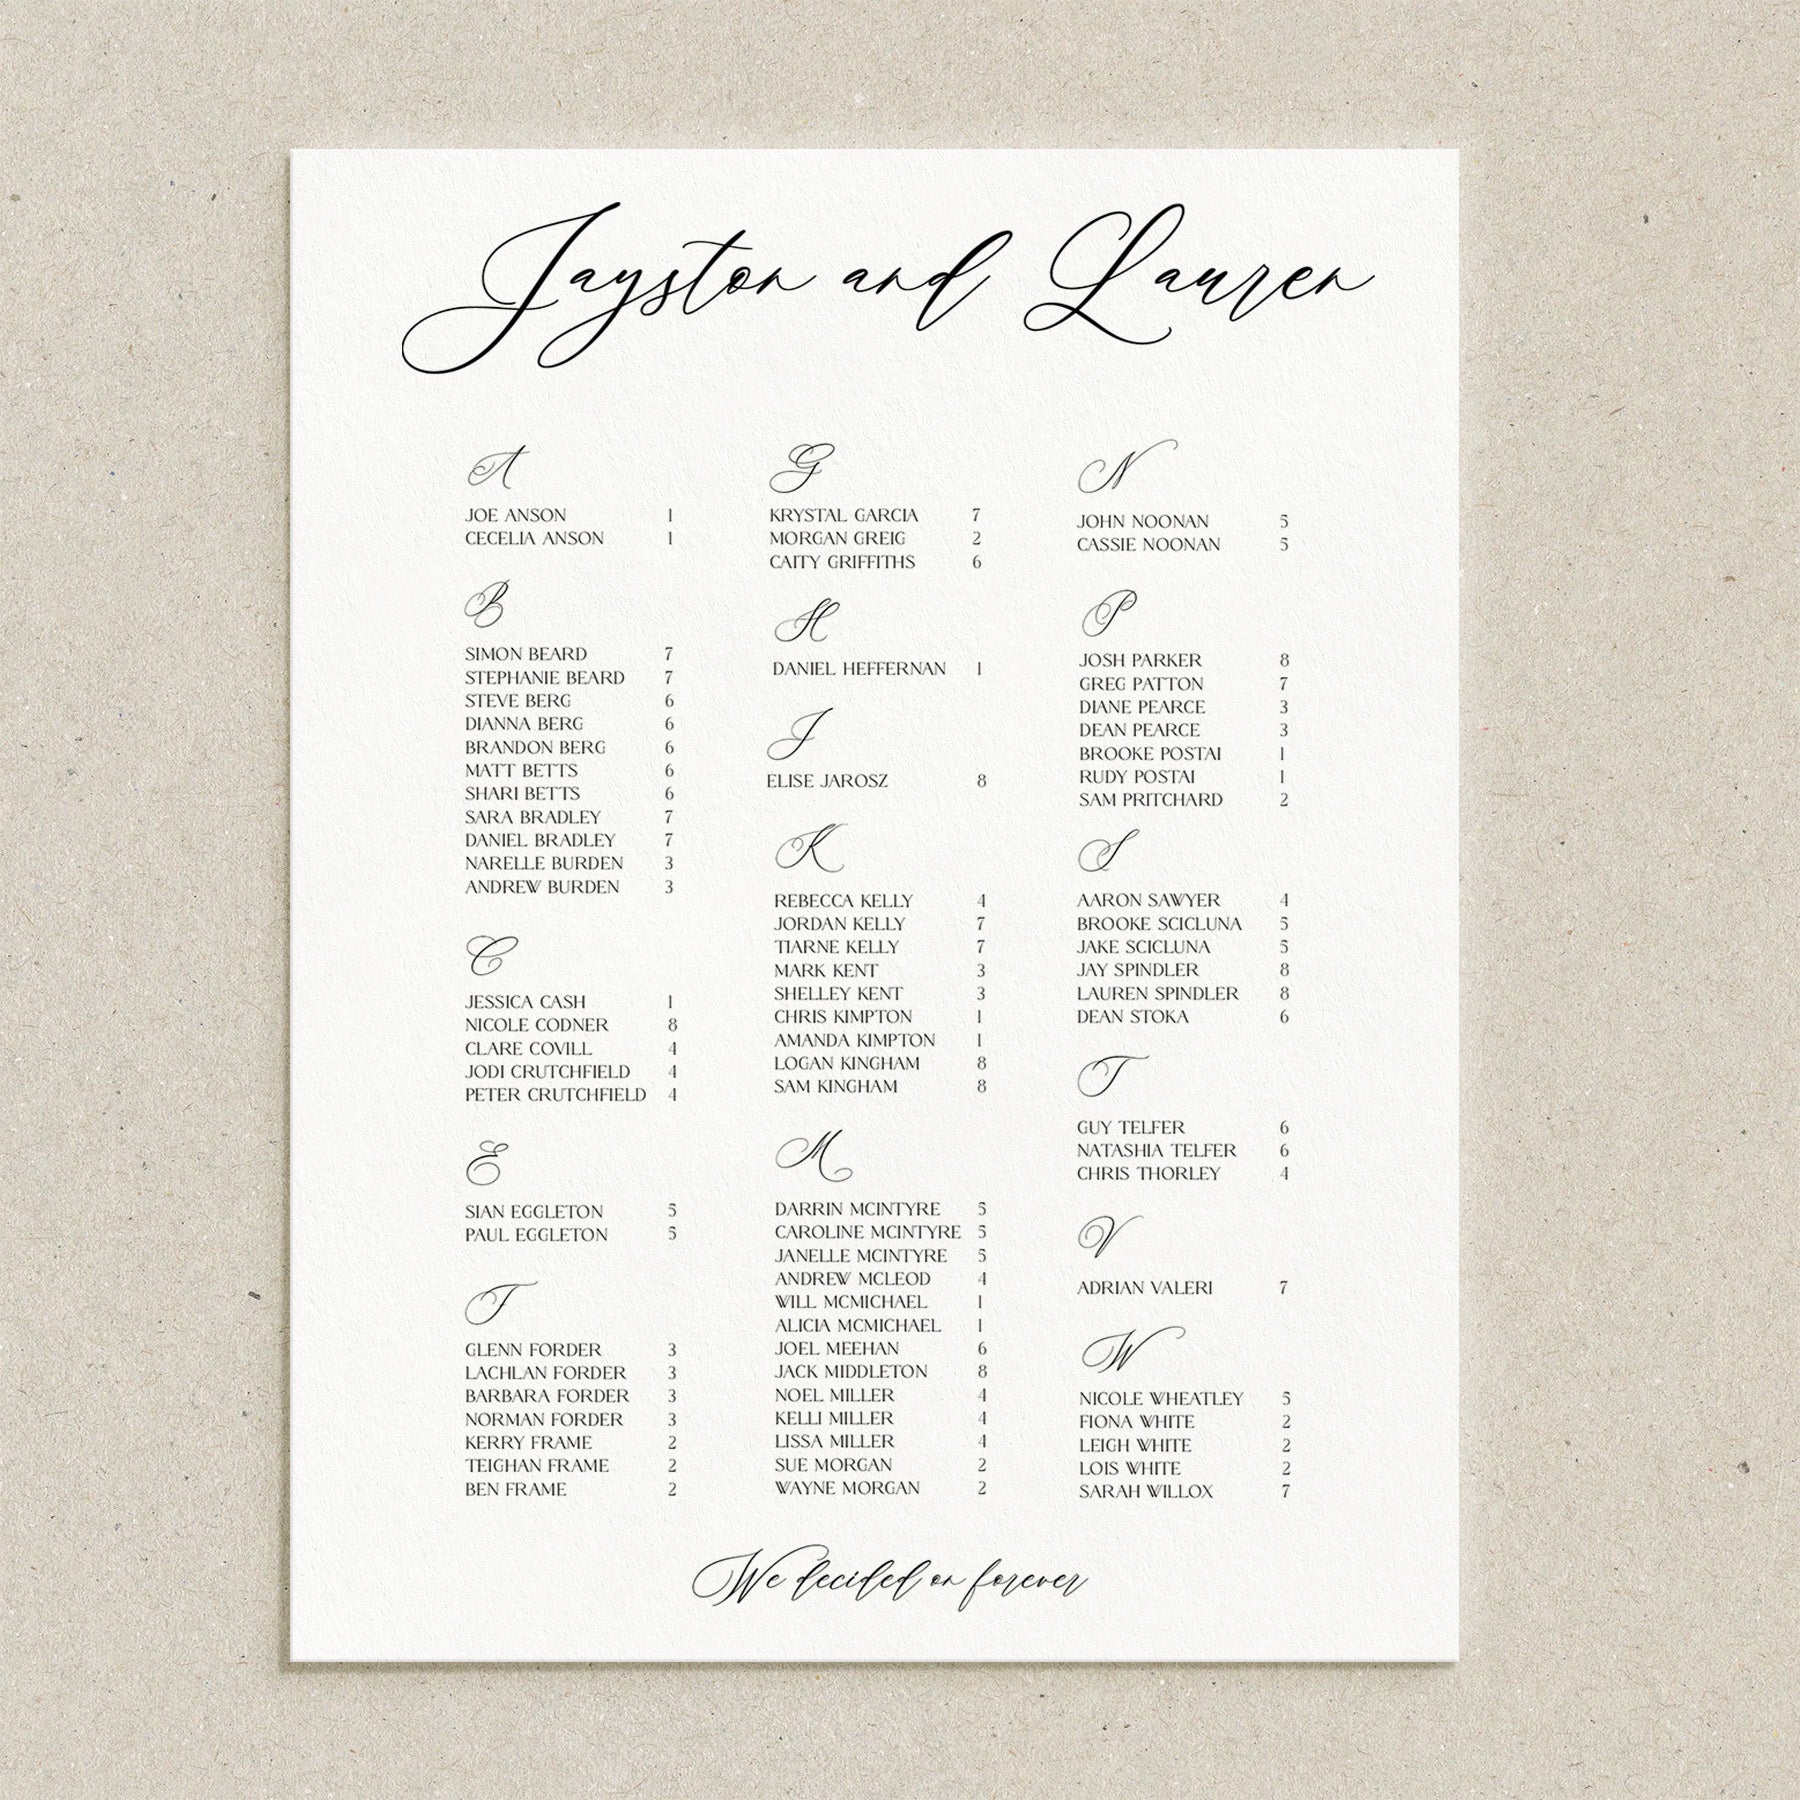 Jayston and Lauren
A
JOE ANSON 1
CECELIA ANSON 1
B
SIMON BEARD 7
STEPHANIE BEARD 7
STEVE BERG 6
DIANNA BERG 6
BRANDON BERG 6
MATT BETTS 6
SHARI BETTS 6
SARA BRADLEY 7
DANIEL BRADLEY 7
NARELLE BURDEN 3
ANDREW BURDEN 3
C
JESSICA CASH 1
NICOLE CODNER 8
CLARE COVILL 4
JODI CRUTCHFIELD 4
PETER CRUTCHFIELD 4
E
SIAN EGGLETON 5
PAUL EGGLETON 5
F
GLENN FORDER 3
LACHLAN FORDER 3
BARBARA FORDER 3
NORMAN FORDER 3
KERRY FRAME 2
TEIGHAN FRAME 2
BEN FRAME 2
G
KRYSTAL GARCIA 7
MORGAN GREIG 2
CAITY GRIFFITHS 6
H
DANIEL HEFFERNAN 1
J
ELISE JAROSZ 8
K
REBECCA KELLY 4
JORDAN KELLY 7
TIARNE KELLY 7
MARK KENT 3
SHELLEY KENT 3
CHRIS KIMPTON 1
AMANDA KIMPTON 1
LOGAN KINGHAM 8
SAM KINGHAM 8
M
DARRIN MCINTYRE 5
CAROLINE MCINTYRE 5
JANELLE MCINTYRE 5
ANDREW MCLEOD 4
WILL MCMICHAEL 1
ALICIA MCMICHAEL 1
JOEL MEEHAN 6
JACK MIDDLETON 8
NOEL MILLER 4
KELLI MILLER 4
LISSA MILLER 4
SUE MORGAN 2
WAYNE MORGAN 2
N
JOHN NOONAN 5
CASSIE NOONAN 5
P
JOSH PARKER 8
GREG PATTON 7
DIANE PEARCE 3
DEAN PEARCE 3
BROOKE POSTAI 1
RUDY POSTAI 1
SAM PRITCHARD 2
S
AARON SAWYER 4
BROOKE SCICLUNA 5
JAKE SCICLUNA 5
JAY SPINDLER 8
LAUREN SPINDLER 8
DEAN STOKA 6
T
GUY TELFER 6
NATASHIA TELFER 6
CHRIS THORLEY 4
V
ADRIAN VALERI 7
W
NICOLE WHEATLEY 5
FIONA WHITE 2
LEIGH WHITE 2
LOIS WHITE 2
SARAH WILLOX 7
We decided on forever